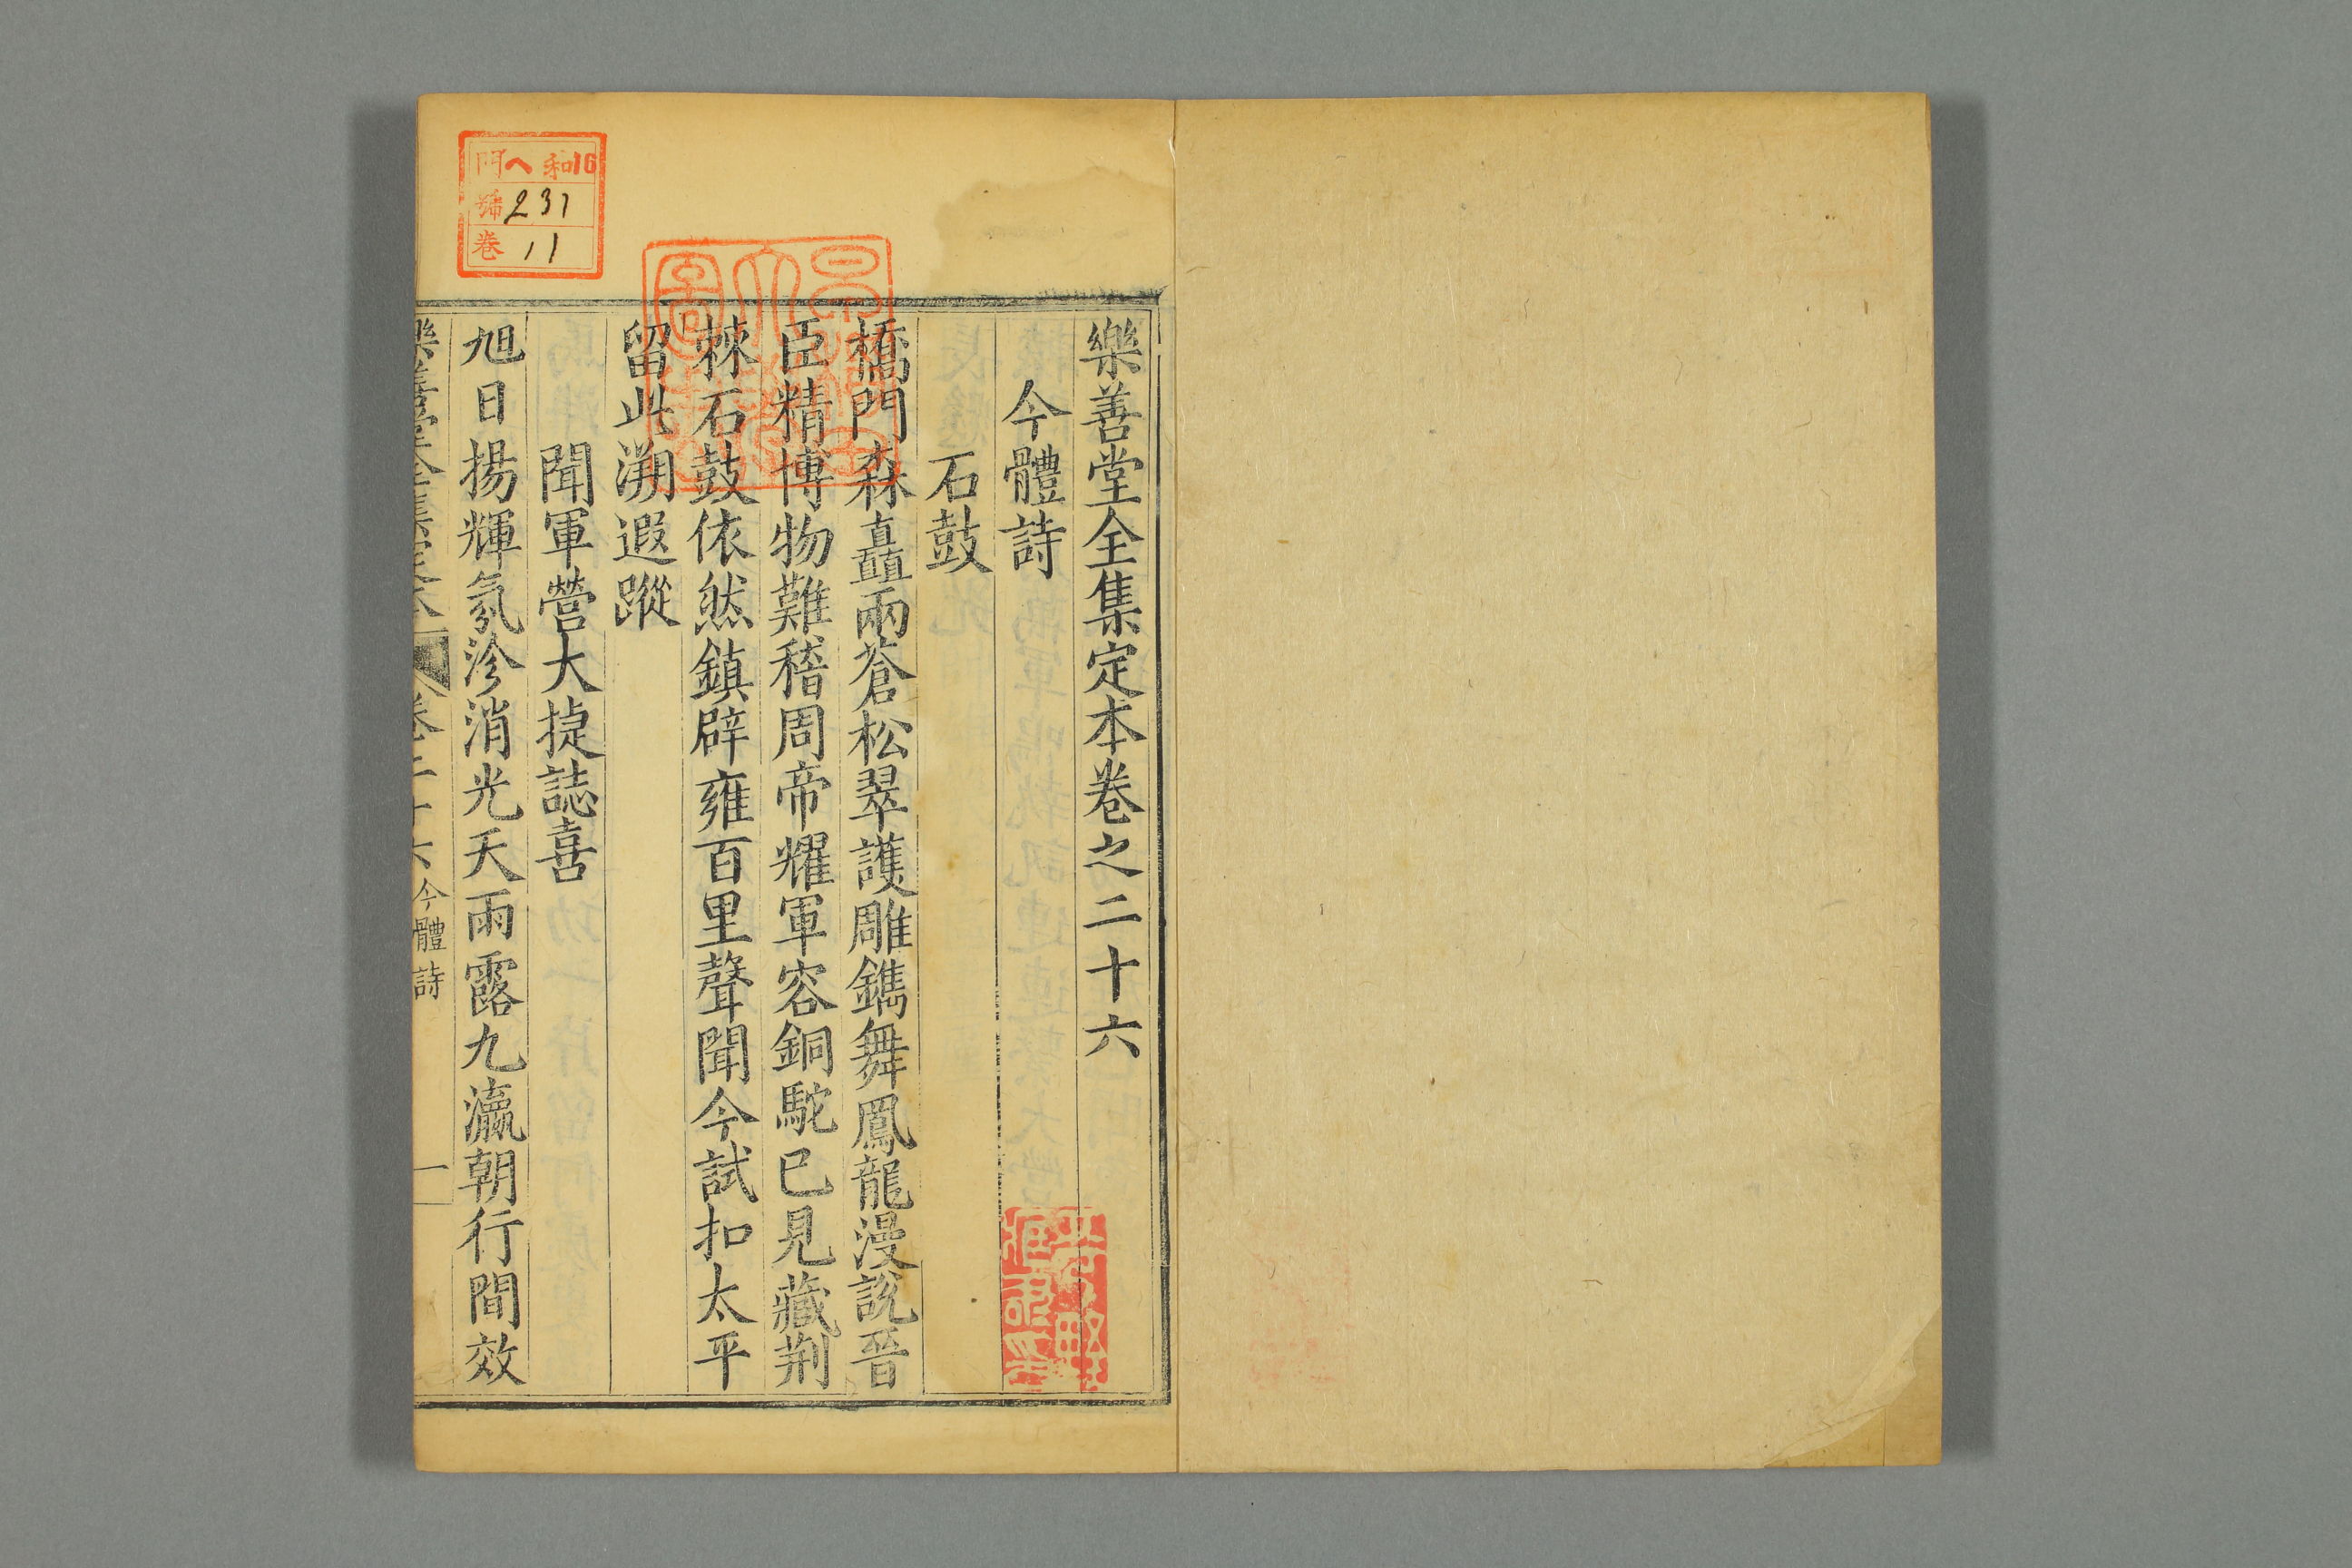 樂善堂全集定本卷之二十六
今體詩
石鼓
橋門森矗兩蒼松翠護雕鐫舞鳳龍漫說晉
臣精博物難稽周帝耀軍容銅駝已見藏荆
棘石鼓依然鎮辟雍百里聲聞今試扣太平
留此溯遐蹤
聞軍營大捷誌喜
旭日揚輝氛沴消光天雨露九瀛朝行間效
樂善堂全集定本 卷二十六 今體詩 一
門 ヘ 和16
號 231
卷 11